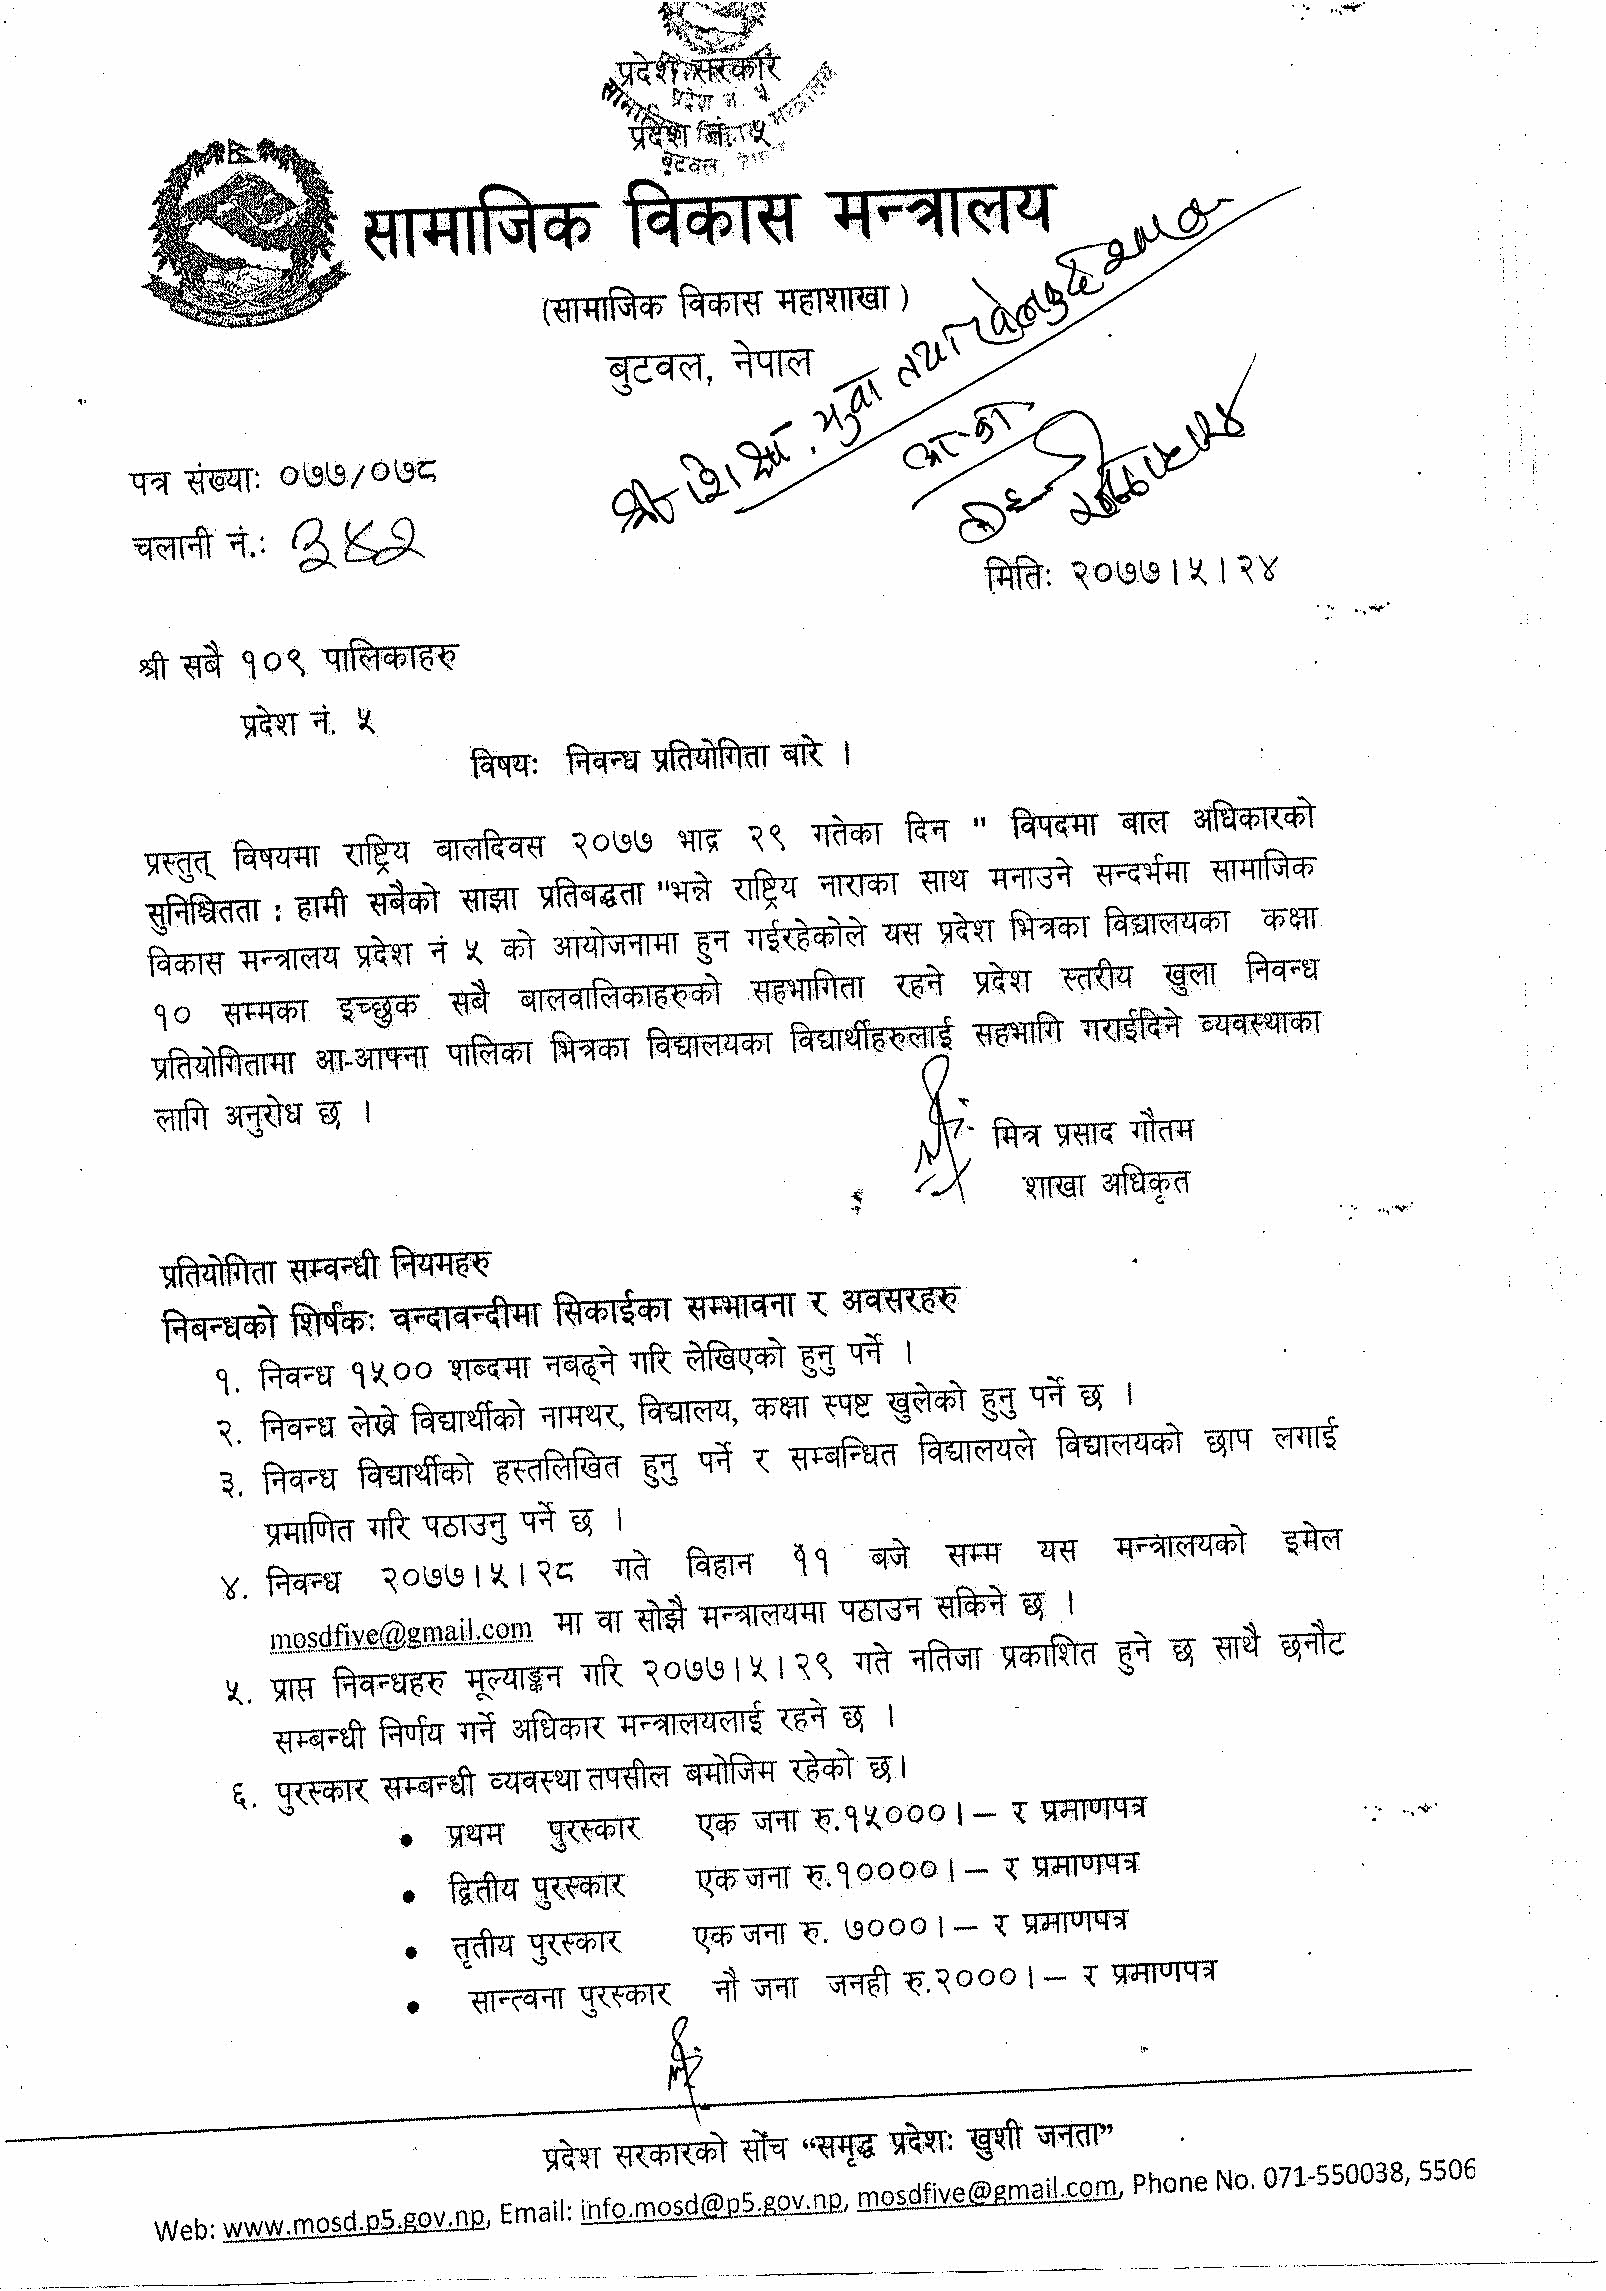 प्रदेश सरकार
प्रदेश नं. ५
सामाजिक विकास मन्त्रालय
(सामाजिक विकास महाशाखा )
बुटवल, नेपाल
श्री शिक्षा, युवा तथा खेलकुद
पत्र संख्याः ०७७/०७८
चलानी नं.: ३४२
मितिः २०७७।५।२४
श्री सबै १०९ पालिकाहरु
प्रदेश नं. ५
विषयः निवन्ध प्रतियोगिता बारे ।
प्रस्तुत् विषयमा राष्ट्रिय बालदिवस २०७७ भाद्र २९ गतेका दिन " विपदमा बाल अधिकारको
सुनिश्चितता : हामी सबैको साझा प्रतिबद्धता "भन्ने राष्ट्रिय नाराका साथ मनाउने सन्दर्भमा सामाजिक
विकास मन्त्रालय प्रदेश नं ५ को आयोजनामा हुन गईरहेकोले यस प्रदेश भित्रका विद्यालयका कक्षा
१० सम्मका इच्छुक सबै बालवालिकाहरुको सहभागिता रहने प्रदेश स्तरीय खुला निवन्ध
प्रतियोगितामा आ-आफ्ना पालिका भित्रका विद्यालयका विद्यार्थीहरुलाई सहभागि गराईदिने व्यवस्थाका
लागि अनुरोध छ ।
मित्र प्रसाद गौतम
शाखा अधिकृत
प्रतियोगिता सम्वन्धी नियमहरु
निबन्धको शिर्षकः वन्दावन्दीमा सिकाईका सम्भावना र अवसरहरु
१. निवन्ध १५०० शब्दमा नबढ्ने गरि लेखिएको हुनु पर्ने ।
२. निवन्ध लेख्ने विद्यार्थीको नामथर, विद्यालय, कक्षा स्पष्ट खुलेको हुनु पर्ने छ ।
३. निवन्ध विद्यार्थीको हस्तलिखित हुनु पर्ने र सम्बन्धित विद्यालयले विद्यालयको छाप लगाई
प्रमाणित गरि पठाउनु पर्ने छ ।
४. निवन्ध २०७७।५।२८ गते विहान ११ बजे सम्म यस मन्त्रालयको इमेल
mosdfive@gmail.com मा वा सोझै मन्त्रालयमा पठाउन सकिने छ ।
५. प्राप्त निवन्धहरु मूल्याङ्कन गरि २०७७।५।२९ गते नतिजा प्रकाशित हुने छ साथै छनौट
सम्बन्धी निर्णय गर्ने अधिकार मन्त्रालयलाई रहने छ ।
६. पुरस्कार सम्बन्धी व्यवस्था तपसील बमोजिम रहेको छ।
• प्रथम पुरस्कार एक जना रु.१५०००।– र प्रमाणपत्र
• द्वितीय पुरस्कार एक जना रु.१००००।– र प्रमाणपत्र
• तृतीय पुरस्कार एक जना रु. ७०००।– र प्रमाणपत्र
• सान्त्वना पुरस्कार नौ जना जनही रु.२०००।– र प्रमाणपत्र
प्रदेश सरकारको सोंच “समृद्ध प्रदेशः खुशी जनता”
Web: www.mosd.p5.gov.np, Email: info.mosd@p5.gov.np, mosdfive@gmail.com, Phone No. 071-550038, 5506